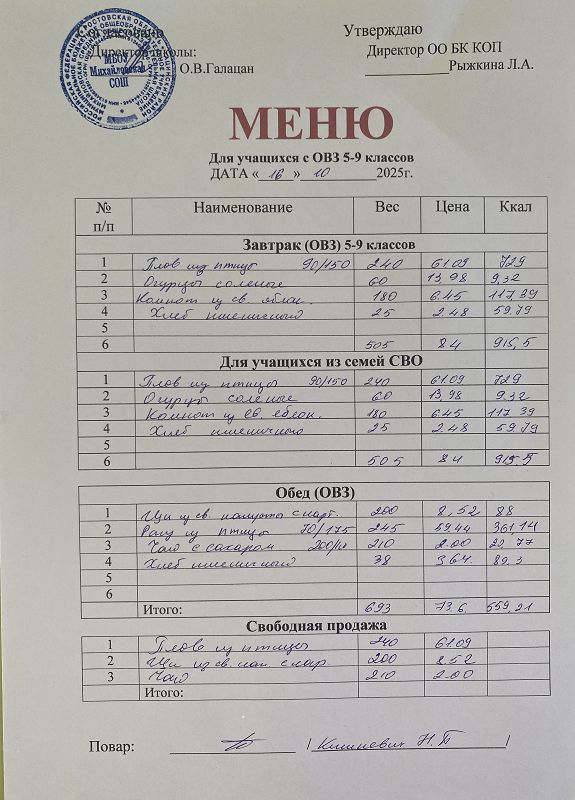 Согласовано Утверждаю
Директор школы: Директор ОО БК КОП
О.В.Галацан Рыжкина Л.А.
МБОУ
Михайловская
СОШ
МЕНЮ
Для учащихся с ОВЗ 5-9 классов
ДАТА « 16 » 10 2025г.
№ п/п Наименование Вес Цена Ккал
Завтрак (ОВЗ) 5-9 классов
1 Плов из птицы 90/150 240 61.09 729
2 Огурцы соленые 60 13,98 9,32
3 Компот из св. яблок. 180 6.45 117,39
4 Хлеб пшеничный 25 2.48 59.79
5
6 505 84 915,5
Для учащихся из семей СВО
1 Плов из птицы 90/150 240 61.09 729
2 Огурцы соленые 60 13,98 9,32
3 Компот из св. яблок. 180 6.45 117.39
4 Хлеб пшеничного 25 2.48 59.79
5
6 505 84 915.5
Обед (ОВЗ)
1 Щи из св. капусты с карт. 200 8,52 88
2 Рагу из птицы 70/175 245 59.44 361,14
3 Чай с сахаром 200/10 210 2.00 20,77
4 Хлеб пшеничный 38 3.64 89,3
5
6
Итого: 693 73,6 559,21
Свободная продажа
1 Плов из птицы 240 61.09
2 Щи из св. кап. с кар. 200 8.52
3 Чай 210 2.00
Итого:
Повар: / Н.Т /